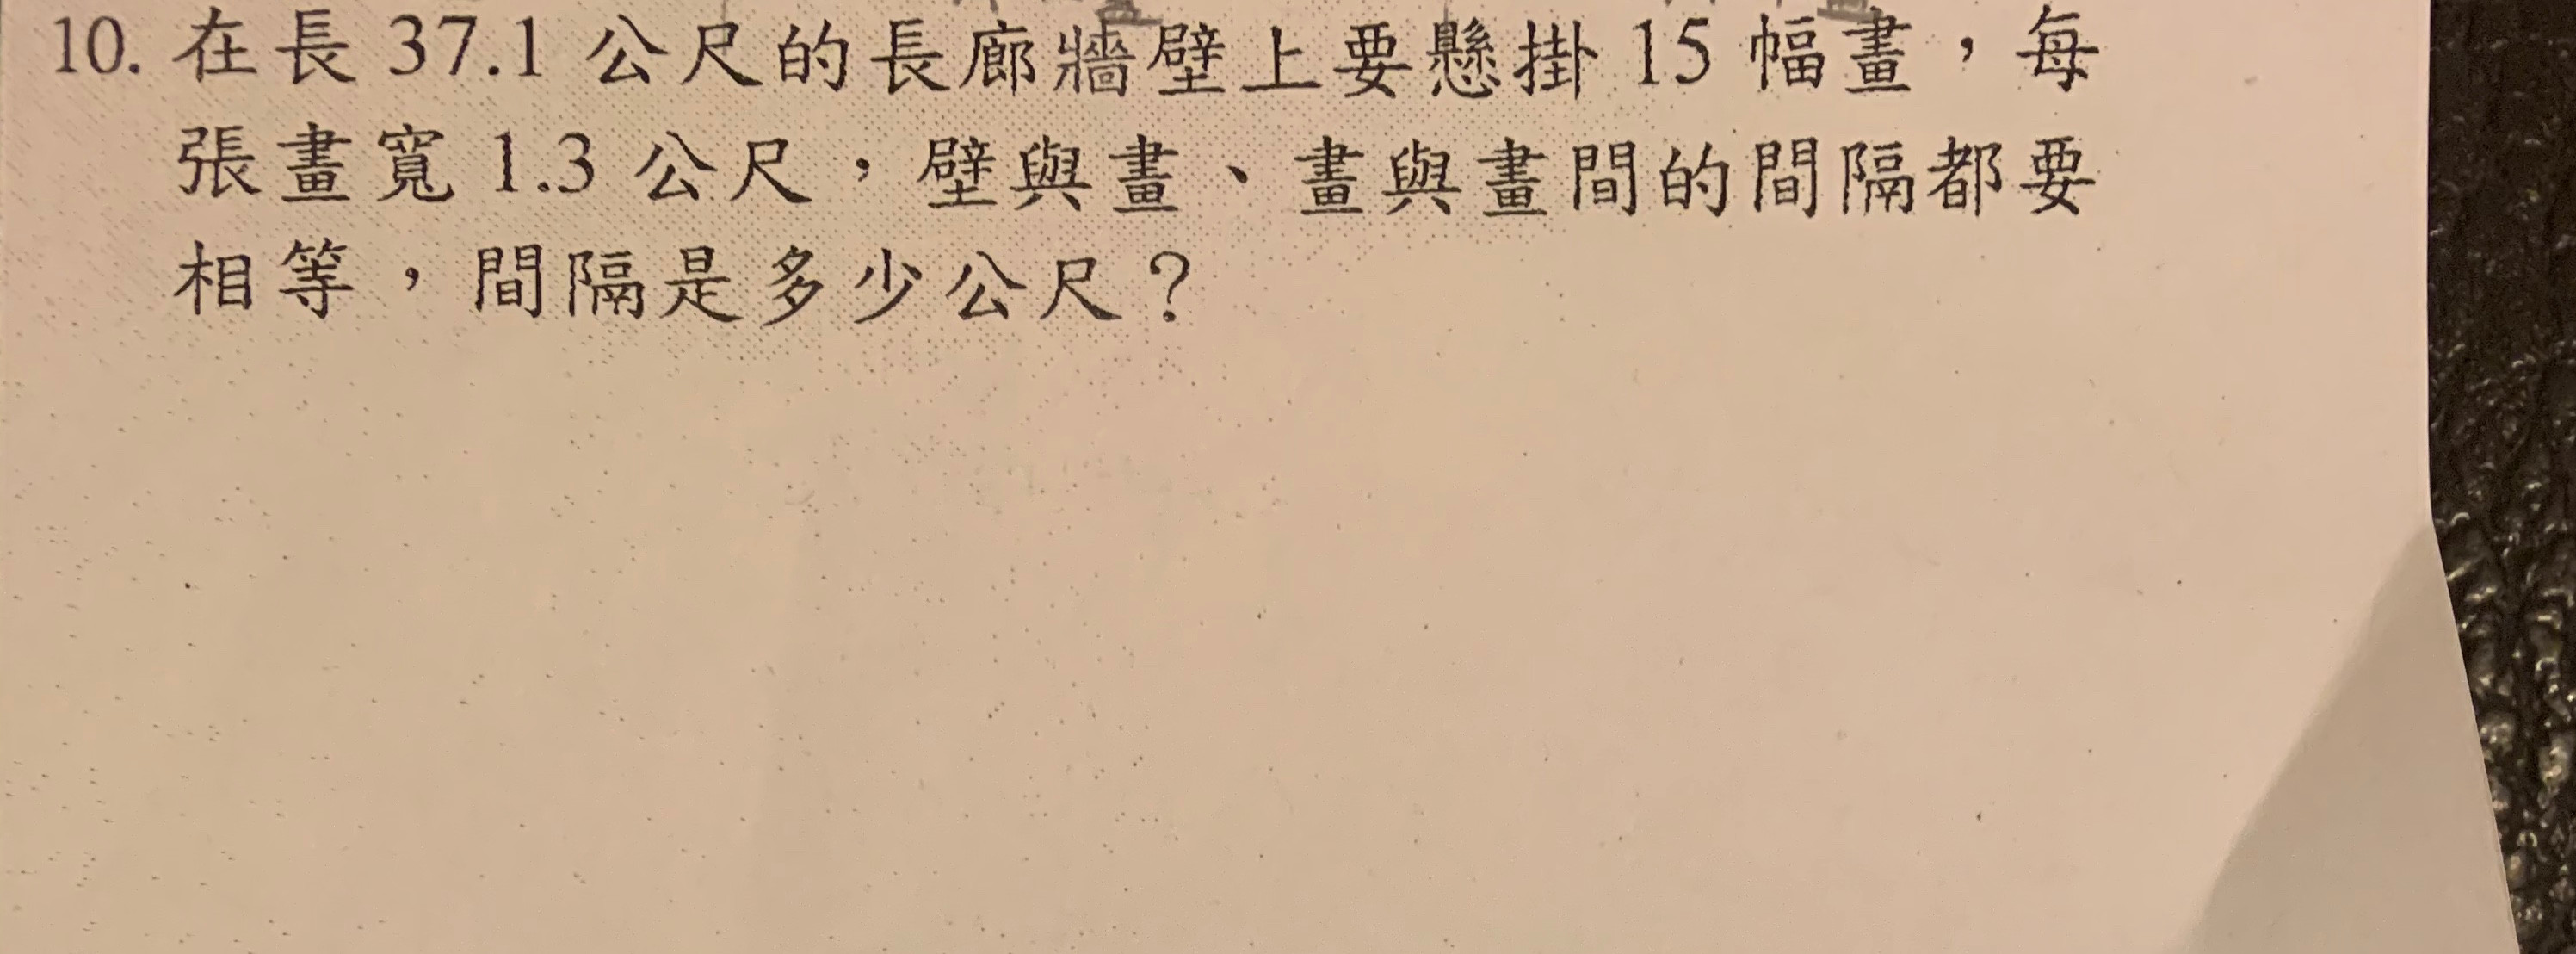 10. 在長 37.1 公尺的長廊牆壁上要懸掛 15 幅畫，每
張畫寬 1.3 公尺，壁與畫、畫與畫間的間隔都要
相等，間隔是多少公尺？